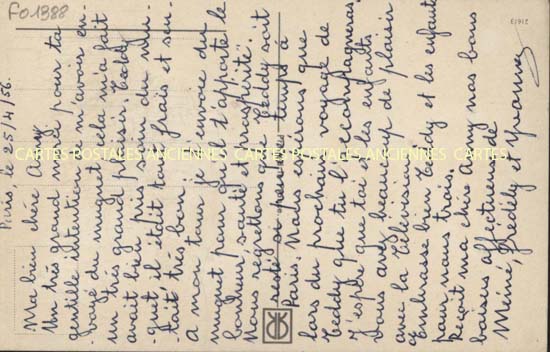 F01388
E1912
Paris, le 25/4/56.
Ma bien chère Any
Un très grand merci pour ta
gentille intention m'avoir en-
voyé du muguet cela m'a fait
un très grand plaisir. Teddy
avait bien pris soin du mu-
guet il était tout frais et sen-
tait très bon.
A mon tour je t'envoie du
muguet pour qu'il t'apporte le
bonheur, santé et prospérité.
Nous regrettons que Teddy soit
resté si peu de temps à
Paris. Nous espérons que
lors du prochain voyage de
Teddy que tu l'accompagneras.
J'espère que toi et les enfants
vous avez beaucoup de plaisir
avec la télévision.
Embrasse bien Tedy et les enfants
pour nous trois.
Reçoit ma chère Any nos bons
baisers affectueux de
Mémé, Frédély et Yvonne
CARTES POSTALES ANCIENNES CARTES POSTALES ANCIENNES CARTES